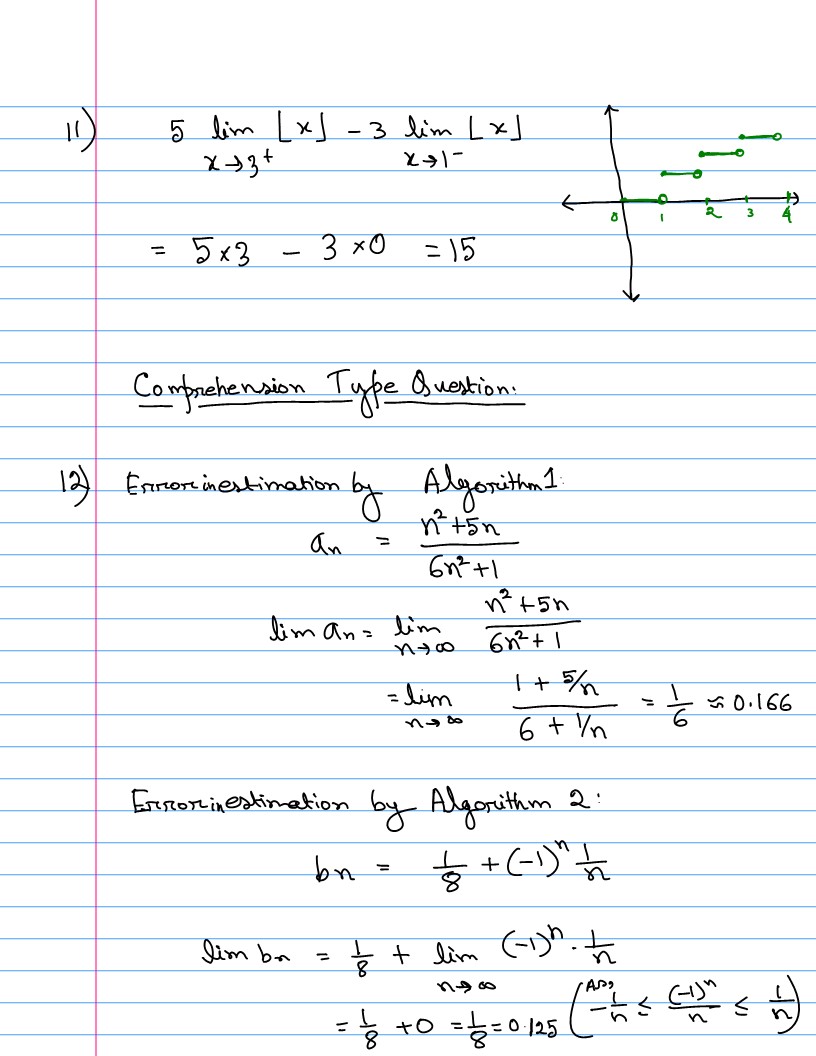 11) 5 lim ⌊x⌋ - 3 lim ⌊x⌋
x→3⁺ x→1⁻
0 1 2 3 4
= 5×3 - 3×0 = 15
Comprehension Type Question:
12) Error in estimation by Algorithm 1:
aₙ = (n²+5n)/(6n²+1)
lim aₙ = lim n→∞ (n²+5n)/(6n²+1)
= lim n→∞ (1 + 5/n)/(6 + 1/n) = 1/6 ≈ 0.166
Error in estimation by Algorithm 2:
bn = 1/8 + (-1)ⁿ 1/n
lim bn = 1/8 + lim n→∞ (-1)ⁿ · 1/n
= 1/8 + 0 = 1/8 = 0.125 (As, -1/n ≤ (-1)ⁿ/n ≤ 1/n)